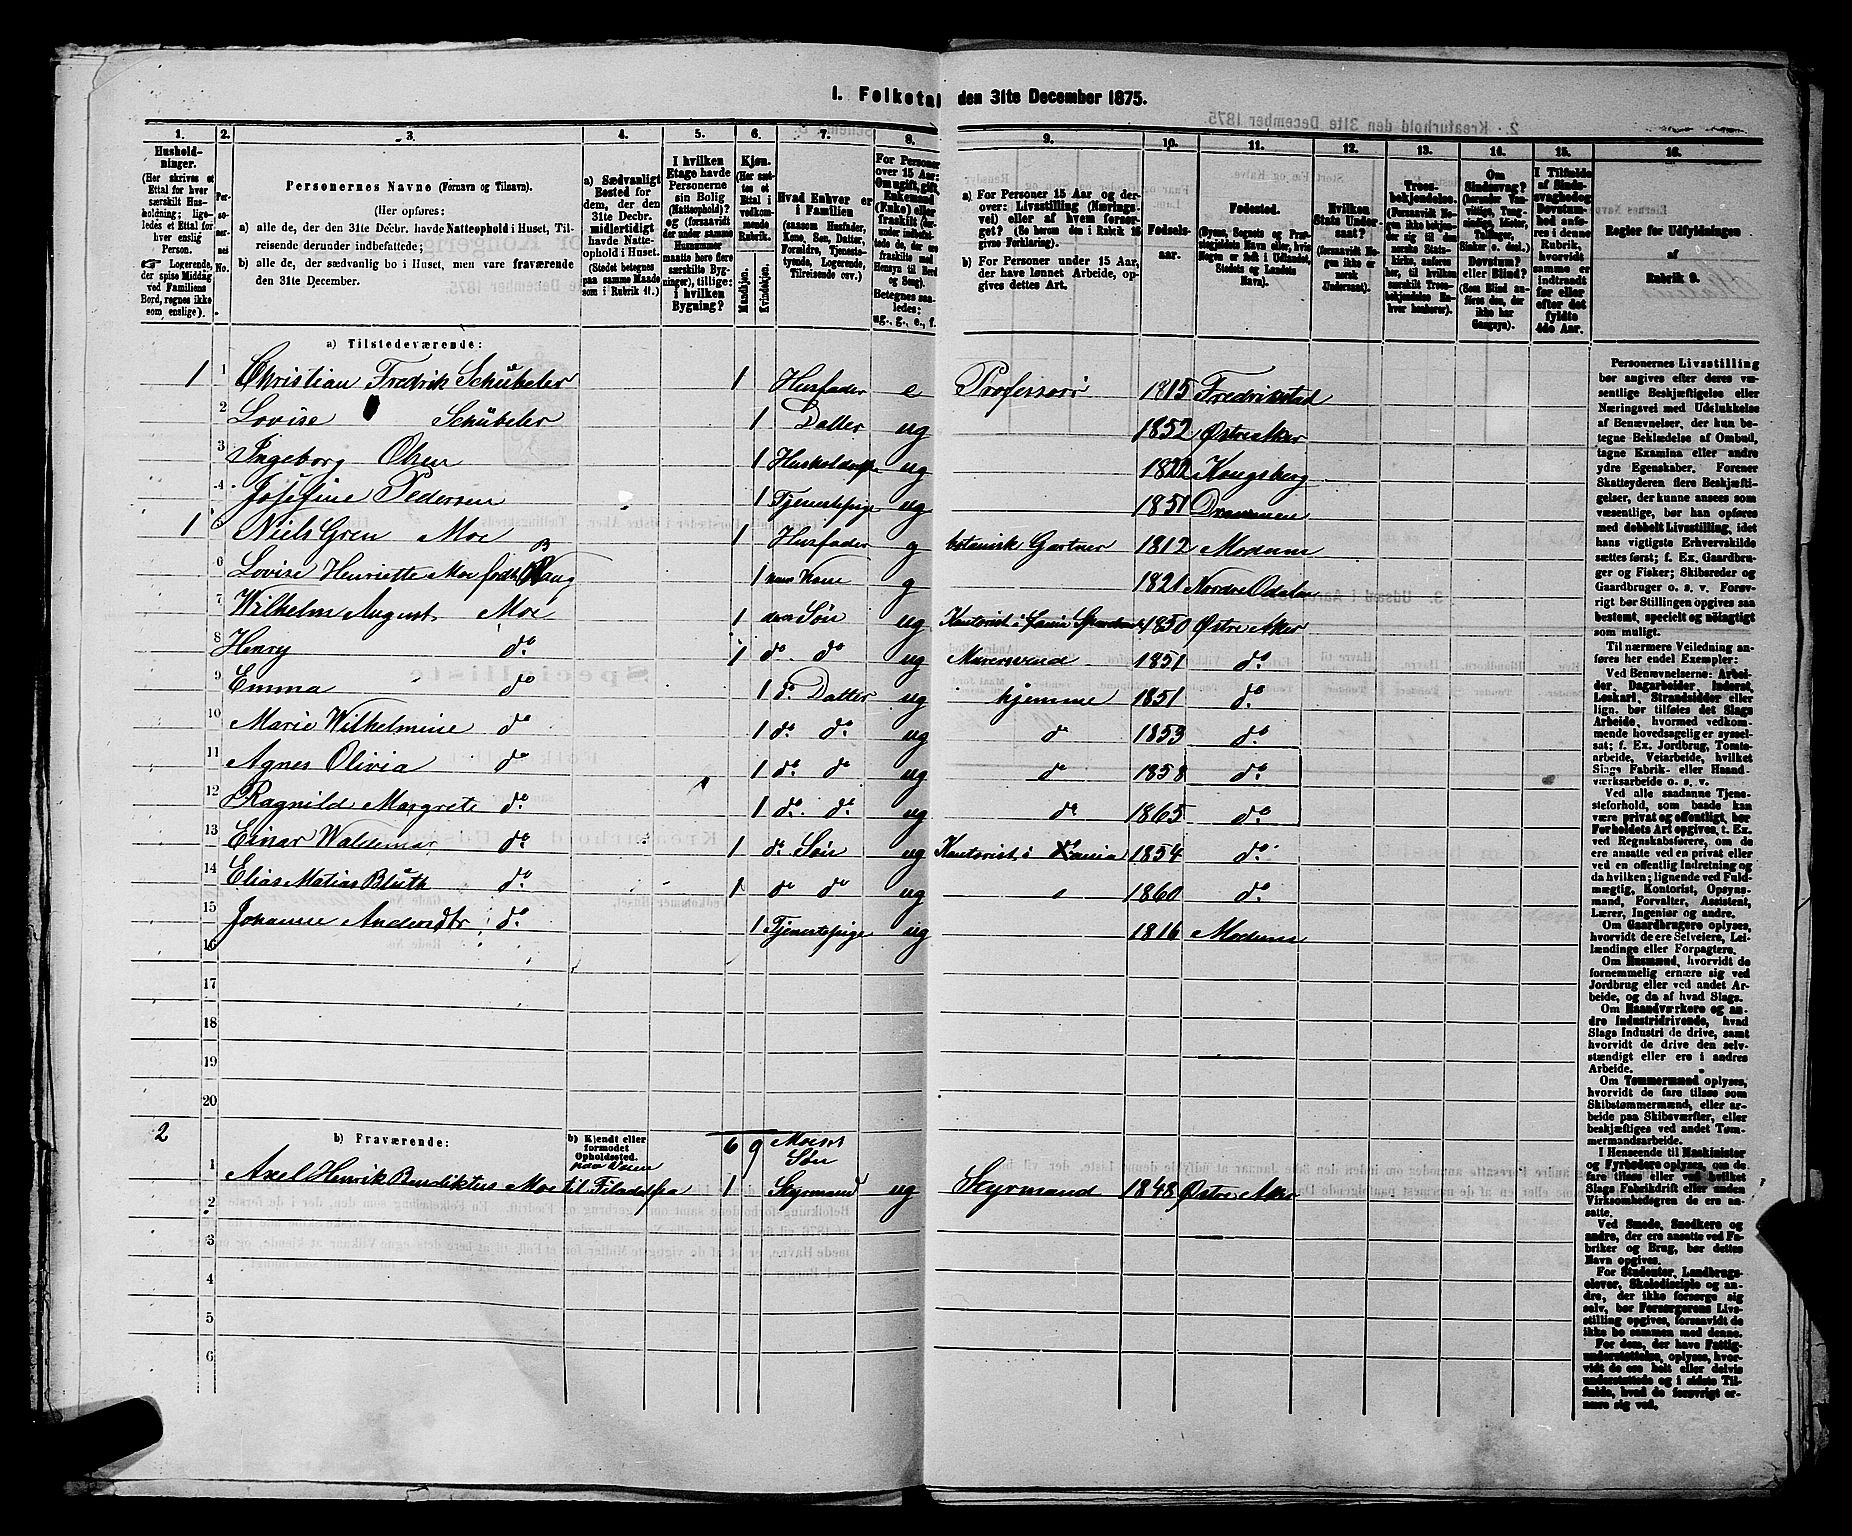 1. Folketal den 31te December 1875.
1. 2. 3. 4. 5. 6. 7. 8. 9. 10. 11. 12. 13. 14. 15. 16.
Husholdninger.
(Her skrives et Ettal for hver særskilt Husholdning; ligeledes et Ettal for hver enslig Person.
☞ Logerende, der spise Middag ved Familiens Bord, regnes ikke som enslige).
Personernes No.
Personernes Navne (Fornavn og Tilnavn).
(Her opføres:
a) alle de, der den 31te Decbr. havde Natteophold i Huset, Tilreisende derunder indbefattede;
b) alle de, der sædvanlig bo i Huset, men vare fraværende den 31te December.
a) Sædvanligt Bosted for dem, der den 31te Decbr. midlertidigt havde Natteophold i Huset.
(Stedet betegnes paa samme Maade som i Rubrik 11.)
I hvilken Etage havde Personerne sin Bolig (Natteophold)? og (forsaavidt der under samme Husnummer maatte høre flere særskilte Bygninger), tillige: i hvilken Bygning?
Kjøn.
(Her sættes et Ettal i vedkommende Rubrik.
Mandkjøn. Kvindekjøn.
Hvad Enhver er i Familien
(saasom Husfader, Kone, Søn, Datter, Forældre, Tjenestetyende, Logerende, Tilreisende osv.)
For Personer over 15 Aar: Om ugift, gift, Enkemand (Enke) eller fraskilt
Betegnes saaledes: ug., g., e., f.
a) For Personer 15 Aar og derover: Livsstilling (Næringsvei) eller af hvem forsørget? (Se herom den i Rubrik 16 givne Forklaring).
b) For Personer under 15 Aar, der have lønnet Arbeide, opgives dettes Art.
Fødselsaar.
Fødested.
(Byens, Sognets og Præstegjeldets Navn eller, hvis Nogen er født i Udlandet, Stedets og Landets Navn).
Hvilken Stats Undersaat?
(forsaavidt Nogen ikke er norsk Undersaat).
Troesbekjendelse.
(Forsaavidt Nogen ikke bekjender sig til den norske Statskirke, anføres her, til hvilken særskilt Troesbekjendelse Enhver henhører).
Om Sindssvag? Døvstum? eller Blind?
(Som Blind anføres den, der ikke har Gangsyn).
I Tilfælde af Sindssvaghed og Døvstumhed anføres i denne Rubrik, hvorvidt samme er indtraadt før eller efter det fyldte 4de Aar.
Regler for Udfyldningen af Rubrik 9.
a) Tilstedeværende:
1 1 Christian Fredrik Schübeler 1 Husfader e Professor 1815 Fredrikstad
2 Lovise Schübeler 1 Datter ug 1852 Østre Aker
3 Ingeborg Olsen 1 ug 1822 Kongsberg
4 Josefine Pedersen 1 Tjenestepige ug 1851 Drammen
1 5 Niels Gren Moe 1 Husfader g botanisk Gartner 1812 Modum
6 Lovise Henriette Moe født 1 hans Kone g 1821 Nordre Odalen
7 Wilhelm August Moe 1 deres Søn ug Kontorist i 1850 Østre Aker
8 Henry do 1 do do ug 1851 do
9 Emma do 1 do Datter ug hjemme 1851 do
10 Marie Wilhelmine do 1 do do ug do 1853 do
11 Agnes Olivia do 1 do do ug do 1858 do
12 Ragnild Margrete do 1 do do ug do 1865 do
13 Einar Waldemar do 1 do Søn ug Kontorist i Xania 1854 do
14 Elias Matias Blüth do 1 do do ug 1860 do
15 Johanne Andersdtr do 1 Tjenestepige ug 1816 Modum
16
17
18
19
20
2 b) Fraværende: b) Kjendt eller formodet Opholdssted. 6 9 Moes Søn
1 Axel Henrik Benediktus Moe til Filadelfia 1 Styrmand ug Styrmand 1848 Østre Aker
2
3
4
5
6
Personernes Livsstilling bør angives efter deres væsentlige Beskjæftigelse eller Næringsvei med Udelukkelse af Benævnelser, der kun betegne Beklædelse af Ombud, tagne Examina eller andre ydre Egenskaber. Forener Skatteyderen flere Beskjæftigelser, der kunne ansees som væsentlige, bør han opføres med dobbelt Livsstilling, idet hans vigtigste Erhvervskilde sættes først; f. Ex. Gaardbruger og Fisker; Skibsreder og Gaardbruger o. s. v. Forøvrigt bør Stillingen opgives saa bestemt, specielt og nøiagtigt som muligt.
Til nærmere Veiledning anføres her endel Exempler:
Ved Benævnelserne: Arbeider, Dagarbeider, Inderst, Løskarl, Strandsidder eller lign. bør tilføies det Slags Arbeide, hvormed vedkommende hovedsagelig er sysselsat; f. Ex. Jordbrug, Tomtearbeide, Veiarbeide, hvilket Slags Fabrik- eller Haandværksarbeide o. s. v.
Ved alle saadanne Tjenesteforhold, som baade kan være privat og offentligt, bør Forholdets Art opgives, t. Ex. ved Regnskabsførere, om de ere ansatte ved en privat eller ved en offentlig Indretning og da hvilken; lignende ved Fuldmægtig, Kontorist, Opsynsmand, Forvalter, Assistent, Lærer, Ingeniør og andre.
Om Gaardbrugere oplyses, hvorvidt de ere Selveiere, Leilændinge eller Forpagtere.
Om Husmænd, hvorvidt de fornemmelig ernære sig ved Jordbrug eller ved andet Arbeide, og da af hvad Slags.
Om Haandværkere og andre Industridrivende, hvad Slags Industri de drive, samt hvorvidt de drive den selvstændigt eller ere i andres Arbeide.
Om Tømmermænd oplyses, hvorvidt de fare tilsøs som Skibstømmermænd, eller arbeide paa Skibsværfter, eller beskjæftiges ved andet Tømmermandsarbeide.
I Henseende til Maskinister og Fyrbødere oplyses, om de fare tilsøs eller ved hvilket Slags Fabrikdrift eller anden Virksomhed de ere ansatte.
Ved Smede, Snedkere og andre, der ere ansatte ved Fabriker og Brug, bør dettes Navn opgives.
For Studenter, Landbrugselever, Skoledisciple og andre, der ikke forsørge sig selv, bør Forsørgerens Livsstilling opgives, forsaavidt de ikke bo sammen med denne.
For dem, der have Fattigunderstøttelse, oplyses, hvorvidt de ere helt eller delvis understøttede og i sidste Tilfælde, hvad de forøvrigt ernære sig ved.